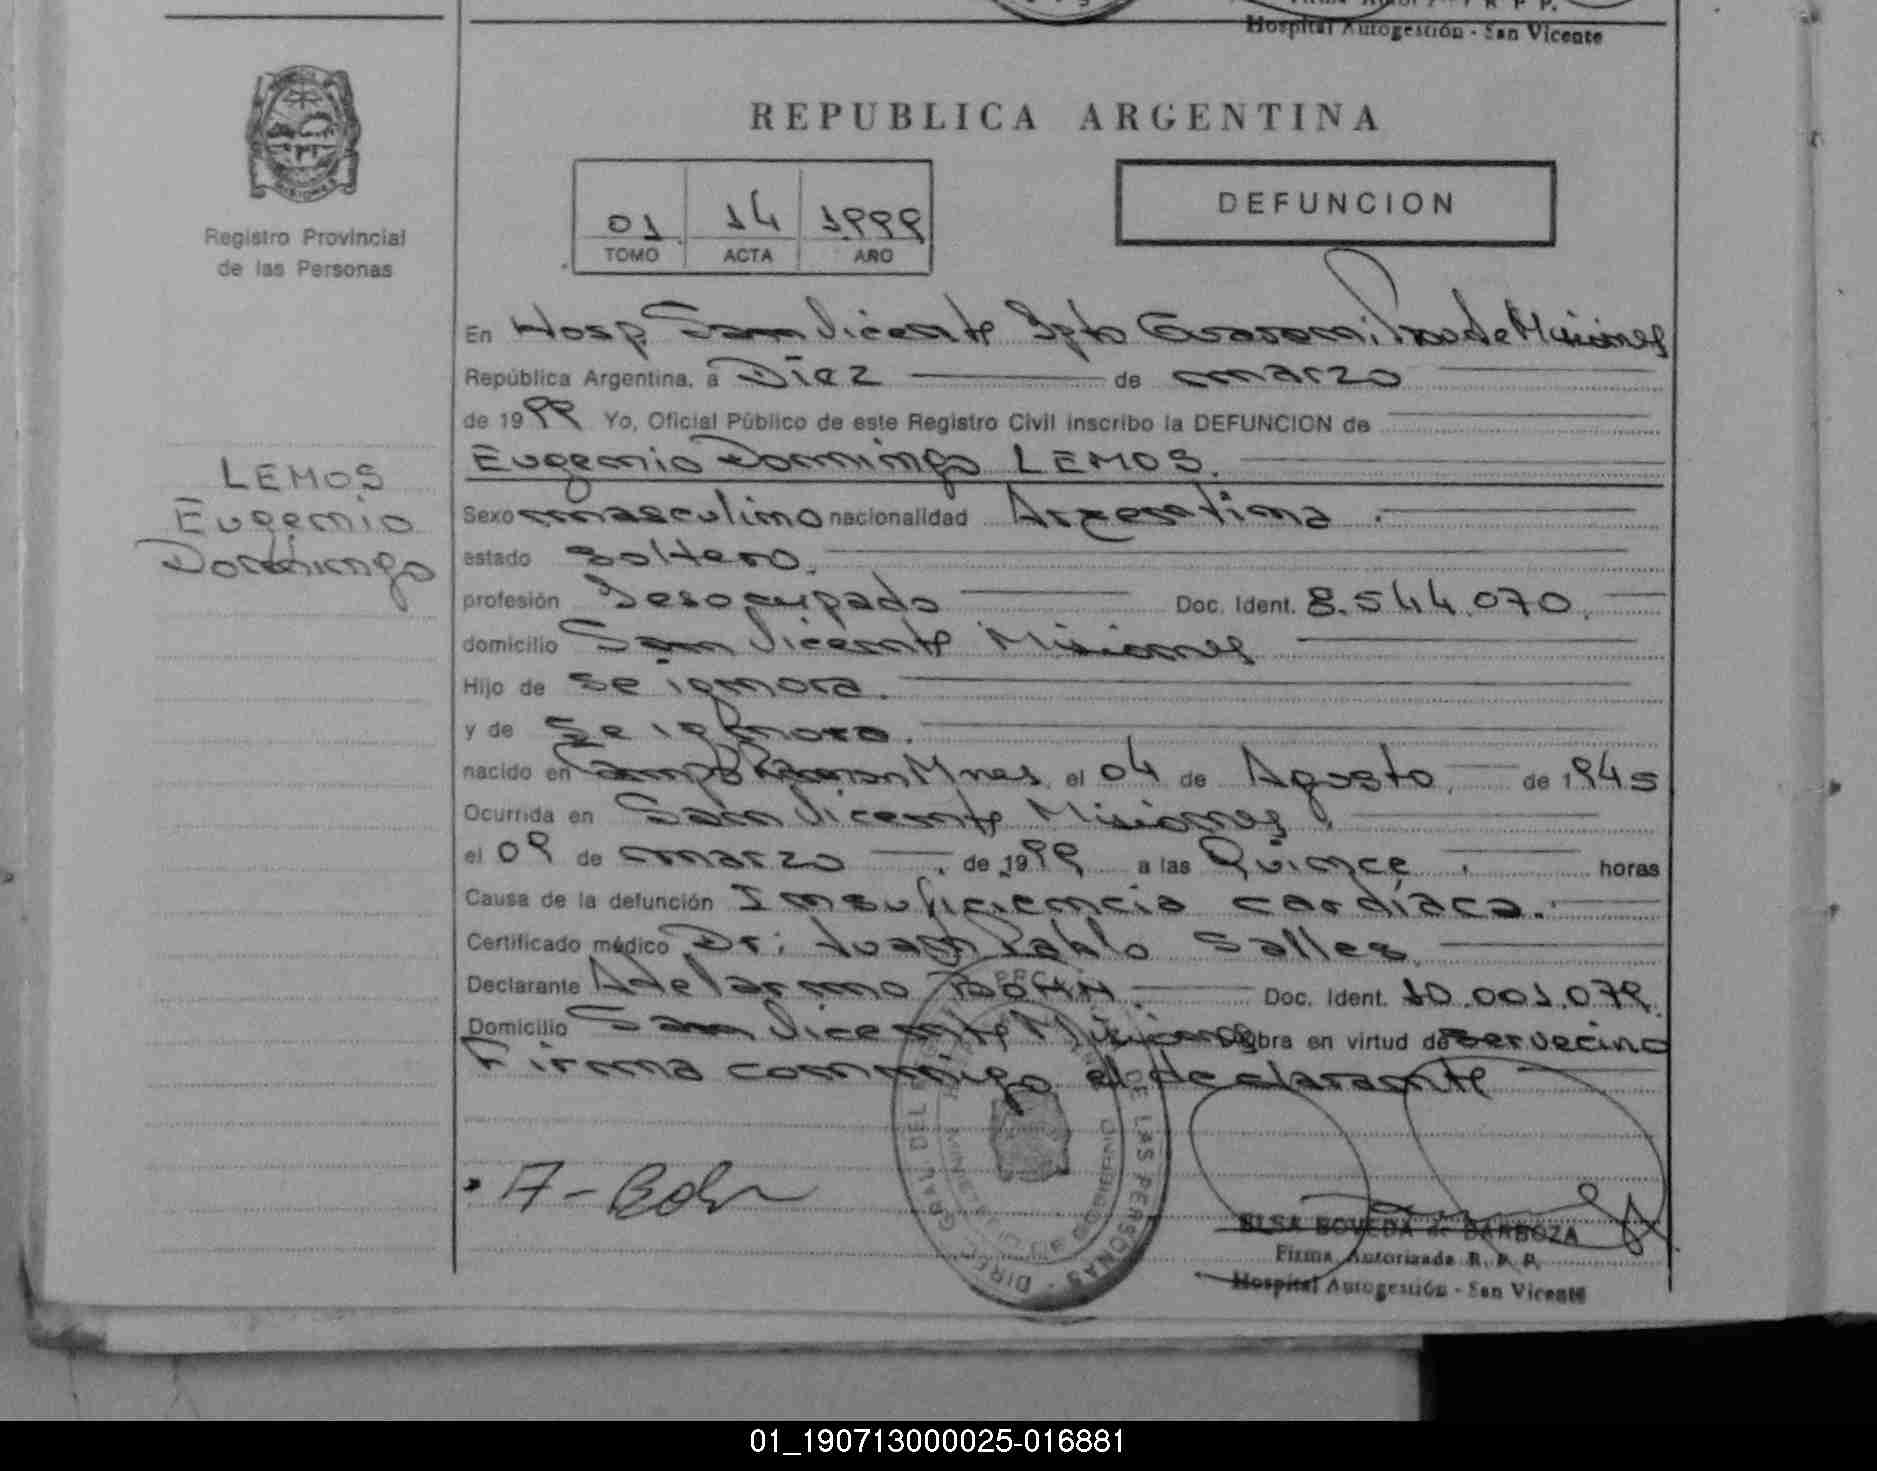 Firma Autorizada R. P. P.
Hospital Autogestión - San Vicente
REPUBLICA ARGENTINA
Registro Provincial
de las Personas
01 14 1999
TOMO ACTA AÑO
DEFUNCION
En Hosp San Vicente Dpto Guarani Prov de Misiones
República Argentina, a Diez de marzo
de 1999 Yo, Oficial Público de este Registro Civil inscribo la DEFUNCION de
Eugenio Domingo LEMOS.
LEMOS
Eugenio
Domingo
Sexo masculino nacionalidad Argentina.
estado soltero.
profesión Desocupado Doc. Ident. 8.544.070.
domicilio San Vicente Misiones
Hijo de se ignora.
y de Se ignora.
nacido en Campo Ramon Mnes, el 04 de Agosto, de 1945
Ocurrida en San Vicente Misiones.
el 09 de marzo. de 1999 a las Quince. horas
Causa de la defunción Insuficiencia cardíaca.
Certificado médico Dr: Juan Pablo Salles
Declarante Adelarmo BOHN. Doc. Ident. 10.001.079.
Domicilio San Vicente Misiones obra en virtud de ser vecino
Firma conmigo el declarante
DIRECC. GRAL DEL REG. PROV. DE LAS PERSONAS
MINISTERIO DE GOBIERNO
A-Bohn
ELSA BOVEDA de BARBOZA
Firma Autorizada R. P. P.
Hospital Autogestión - San Vicente
01_190713000025-016881